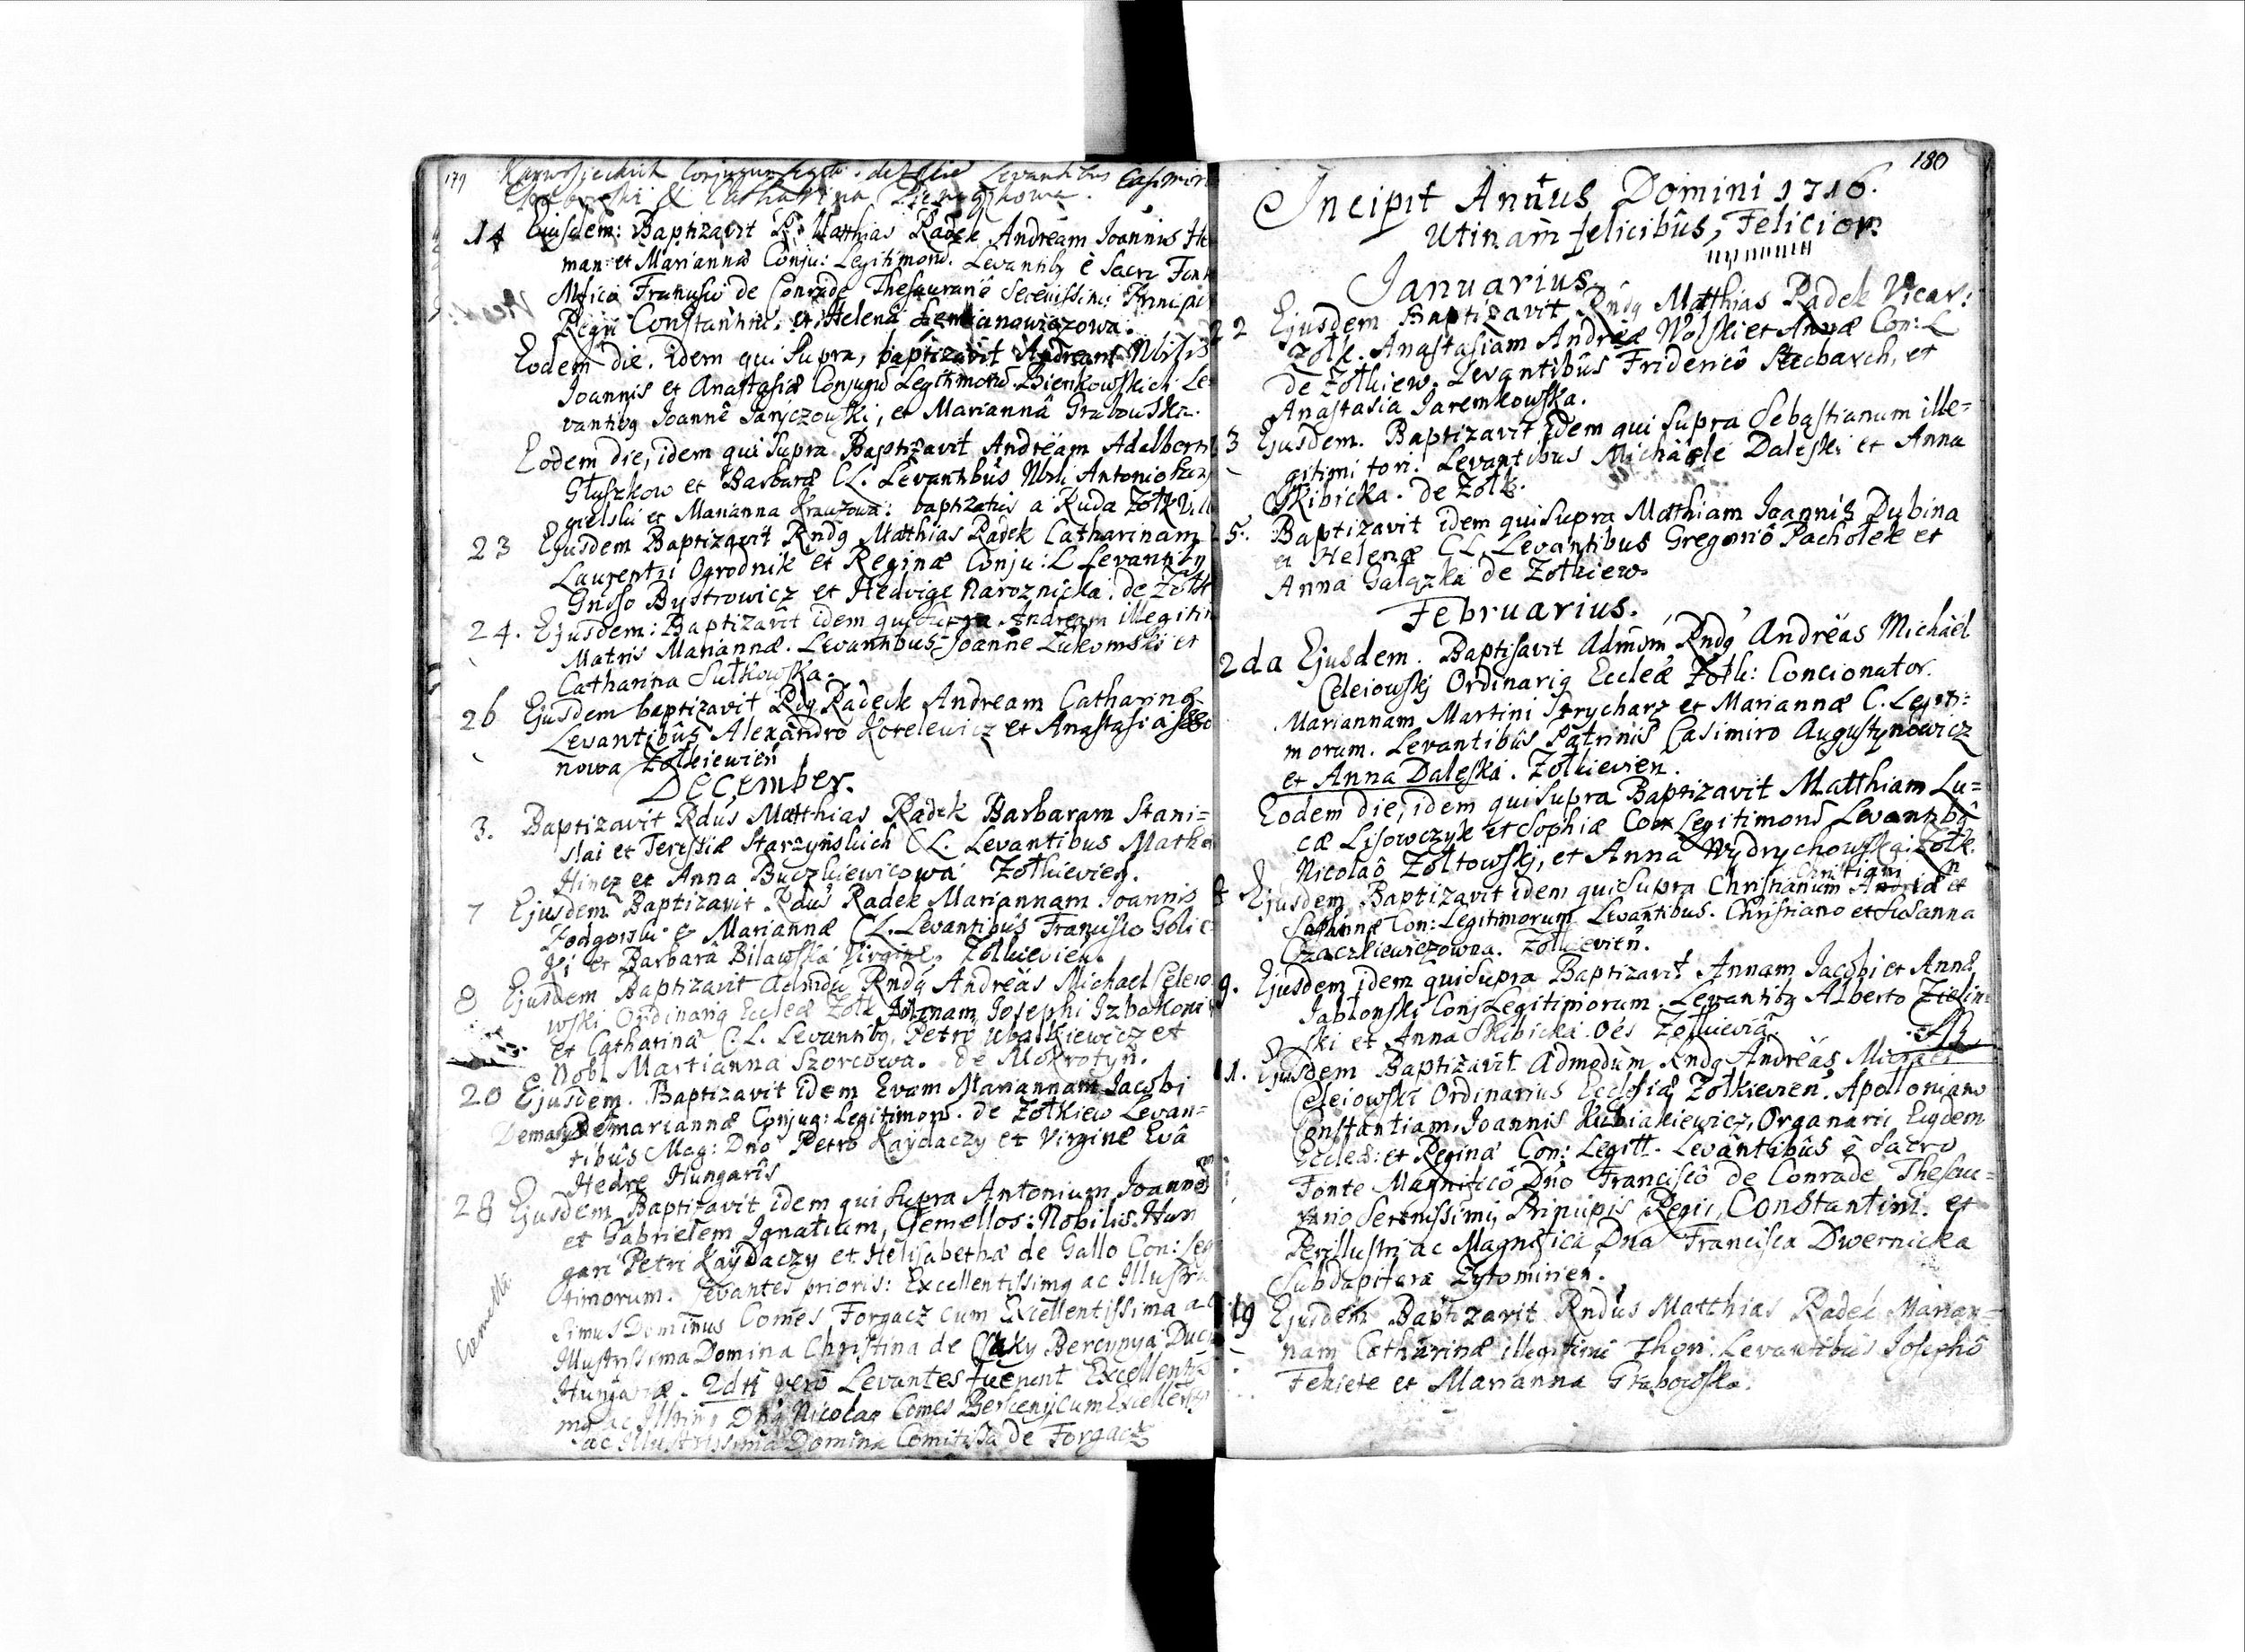 179
Conjugum Legit: de Levantibus Casimiro
& Catharina
14 Ejusdem: Baptizavit R. Matthias Radek Andream Joannis He
man et Mariannæ Conju: Legitimorũ. Levantibꝰ è Sacro Fonte
de Conrade Thesaurariô Serenissimi Principis
Regii Constantini, et Helenâ
Eodem die. Idem qui Supra, baptizavit Andream
Joannis et Anastasiæ Conjugũ Legitimorũ Bienkowskich Le-
vantibꝰ Joanne Janiczowski, et Mariannâ Grabowska.
Eodem die, idem qui Supra Baptizavit Andrëam Adalberti
Głuszkow et Barbaræ CL. Levantibûs Nbli Antonio
gielski et Marianna Krawzowa: baptizatus a Ruda Zołk
23 Ejusdem Baptizavit Rndꝰ Matthias Radek Catharinam
Laurentii Ogrodnik et Reginæ Conju: L Levantibꝰ
Gnoso Bystrowicz et Hedvige Naroznicka. de Zołk
24. Ejusdem: Baptizavit idem qui Supra Andream illegitim
Matris Mariannæ. Levantibus Joanne Lukomski et
Catharina Sułkowska.
26 Ejusdem baptizavit Rdꝰ Radeck Andream Catharinæ
Levantibûs Alexandrô Kotelewicz et Anastasiâ
nowa Zołkiewień
December.
3. Baptizavit Rdus Matthias Radek Barbaram Stani=
slai et Teresiæ Starzyńskich CL. Levantibus Mathe
Hincz et Anna Buczkiewicowa Zołkievien.
7 Ejusdem Baptizavit Rdus Radek Mariannam Joannis
Podgorski & Mariannæ CL. Levantibûs Francisco Golic
ki et Barbarâ Bilawska Virgine. Zolkievien.
8 Ejusdem Baptizavit Admdu Rndꝰ Andreäs Michael Celeio
wski Ordinariꝰ Eccleæ Zołk Josephi
et Catharinæ C.L. Levantibꝰ. Petro Ubaskiewicz et
Nobl Martianna Szorcowa. de Mokrotyn.
20 Ejusdem. Baptizavit idem Evam Mariannam Jacobi
et mariannæ Conjug: Legitimorũ. de Zołkiew Levan=
tibûs Mag: Dno Petro Kaydaczy et Virgine Evâ
Hedre Hungarîs
28 Ejusdem Baptizavit idem qui Supra Antonium Joannem
et Gabrielem Ignatium, Gemellos: Nobilis: Hun
gari Petri Kaydaczy et Helisabethæ de Gallo Con: Leg
timorum. Levantes prioris: Excellentissimꝰ ac Illustris
simus Dominus Comes Forgacz cum Excellentissima ac
Gemelli
Illustrissima Domina Christina de Csaky Bercynya Duc
Hungariæ. 2dii verò Levantes fuerunt Excellentissi
mꝰ ac Illtrimꝰ Dnꝰ Nicolaꝰ Comes Bercenij cum Excellentis
ac Illustrissima Domina Comitissa de Forgacz
180
Incipit Annus Domini 1716.
Utinam felicibûs, Felicior
Januarius
2 Ejusdem Baptizavit Rndꝰ Matthias Radek Vicar:
Zołk. Anastasiam Andreæ Wolski et Annæ Con: L
de Żołkiew. Levantibûs Fridericô Stecbarch, et
Anastasia Jaremkowska.
3 Ejusdem. Baptizavit idem qui Supra Sebastianum ille=
gitimi tori. Levantibus Michaele Daleski et Anna
Skibicka. de Zołk.
5. Baptizavit idem qui Supra Mathiam Joannis Dubina
et Helenæ CL. Levantibus Gregoriô Pacholek et
Anna Gałązka de Zołkiew.
Februarius.
2da Ejusdem. Baptisavit Admom Rndꝰ Andrëas Michäel
Celeiowskj Ordinariꝰ Eccleæ Zołk: Concionator.
Mariannam Martini Strycharz et Mariannæ C. Legiti=
morum. Levantibûs Patrinis Casimiro Augustynowicz
et Anna Daleska. Zołkievien.
Eodem die, idem qui Supra Baptizavit Matthiam Lu=
cæ Lisowczyk et Sophiæ Con Legitimorũ Levantibꝰ
Nicolaô Zołtowskj, et Anna Wydrychowska Zołk.
Christiani
8 Ejusdem Baptizavit idem qui Supra Christianum et
Con: Legitimorum Levantibus. Christiano et Susanna
Czaczkiewiczowna. Zołkievień.
9. Ejusdem idem qui Supra Baptizavit Annam Jacobi et Annæ
Jabłonski Conj Legitimorum. Levantibꝰ Alberto Zielin
ski et Anna Skibicka. Oes Zołkieviæ.
11. Ejusdem Baptizavit Admodum Rndꝰ Andrëas Michael
Celeiowski Ordinarius Ecclesiæ Zołkievien. Apolloniam
Constantiam, Joannis Kubiakiewicz, Organarii Eiqdem
Eccleæ: et Reginæ Con: Legitt. Levântibûs ê Sacro
Fonte Magnificô Dño Franciscô de Conrade Thesau=
rario Serenissimi Principis Regii, Constantini. et
Perillustri ac Magnificâ Dna Francisca Dwernicka
Subdapifera Zytomirien.
19 Ejusdem Baptizavit Rndus Matthias Radek Marian=
nam Catharinæ illegitimi Thori. Levantibûs Josephô
Fekete et Marianna Grabowska.